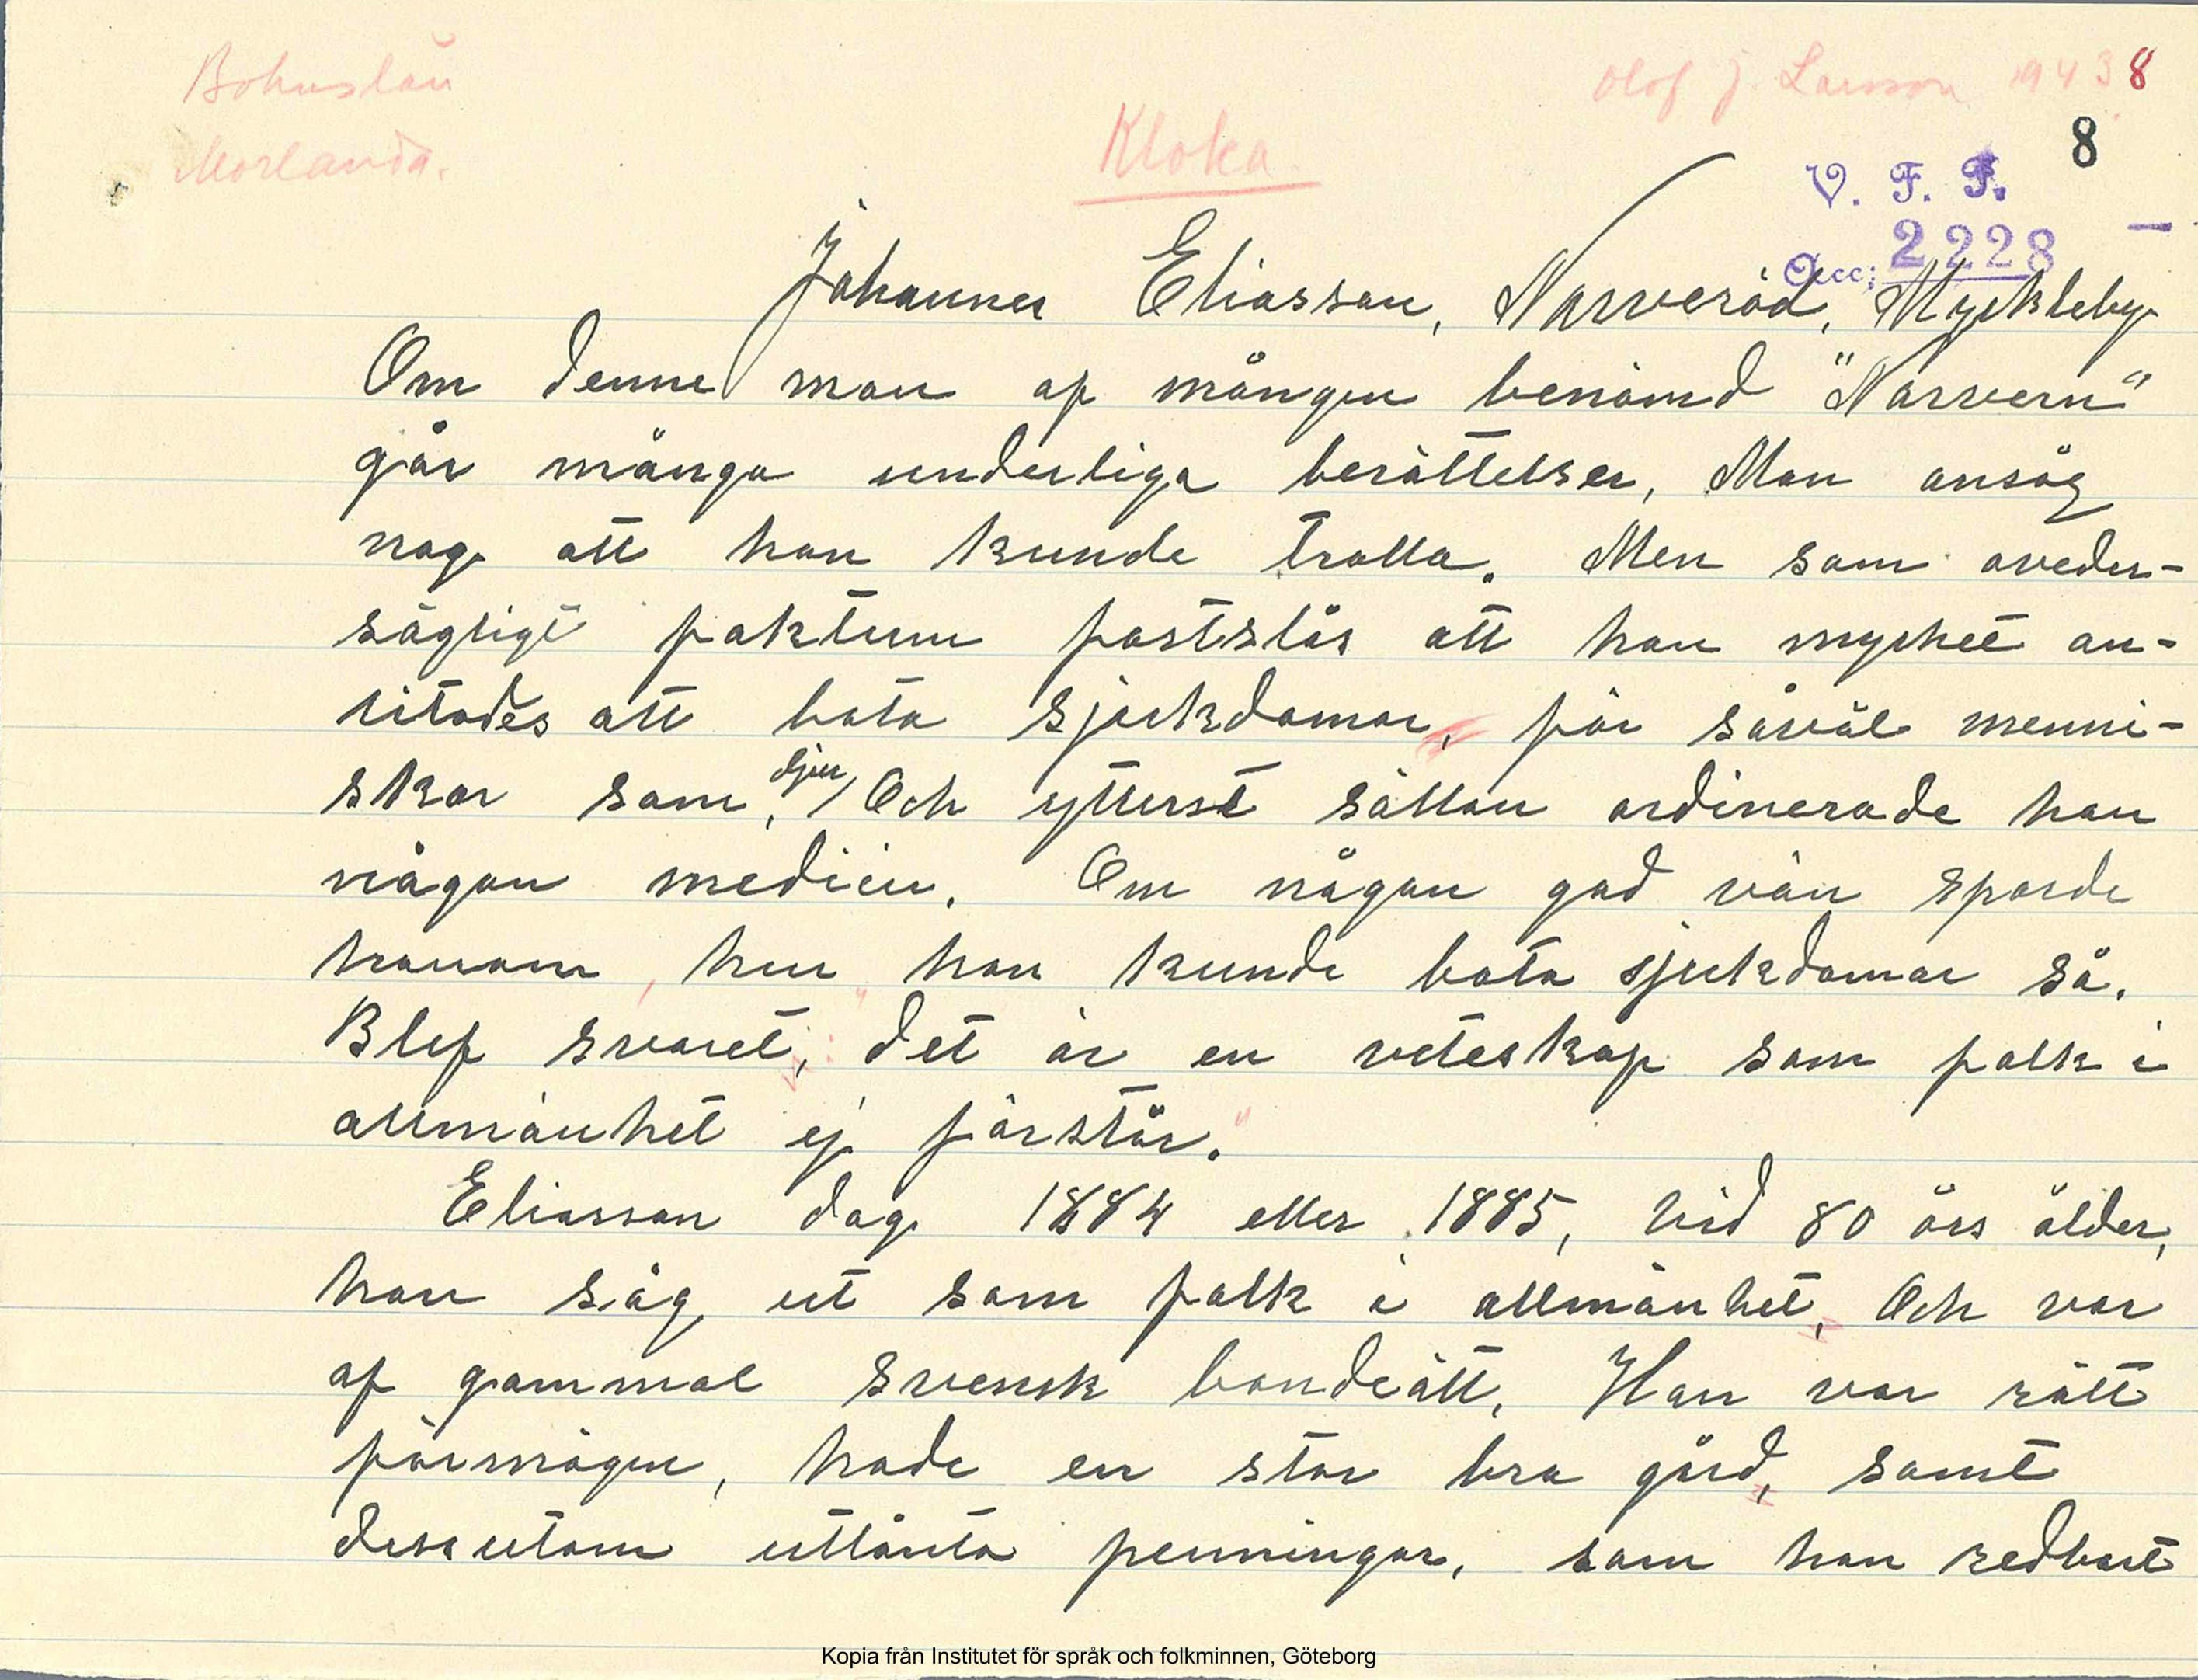 Bohuslän
Olof J. Larsson 1943
8
Morlanda.
Kloka
8
V. F. F.
Acc; 2228 -
Johannes Eliasson, Narveröd, Myckleby
Om denne man af mången benämd "Narvern"
går många underliga berättelser, Man ansåg
nog att han kunde trolla. Men som oveder-
sägligt faktum fastslås att han mycket an-
litades att bota sjuckdomar, för såväl menni-
skor som djur, Och ytterst sällan ordinerade han
någon medicin. Om någon god vän sporde
honom, hur han kunde bota sjukdomar så.
Blef svaret, det är en veteskap som folk i
allmänhet ej förstår."
Eliasson dog 1884 eller 1885, vid 80 års ålder,
han såg ut som folk i allmänhet, Och var
af gammal svensk bondeätt, Han var rätt
förmögen, hade en stor bra gård, samt
dessutom utlånta penningar, som han redbart
Kopia från Institutet för språk och folkminnen, Göteborg